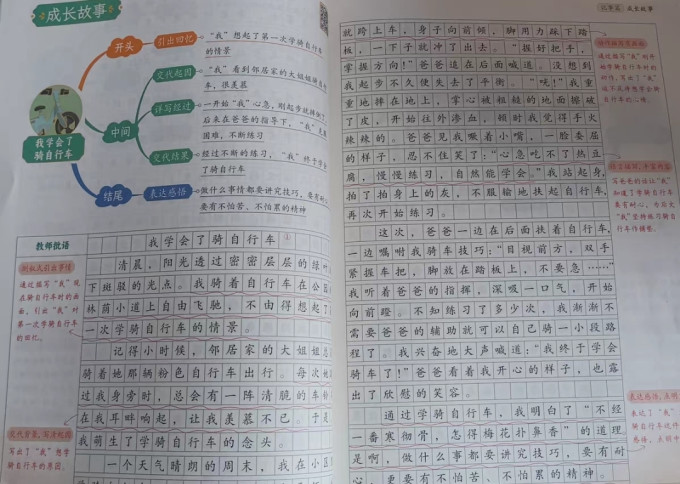 成长故事
开头
引出回忆
“我”想起了第一次学骑自行车
的情景
我学会了
骑自行车
中间
交代起因
“我”看到邻居家的大姐姐骑自行
车,很羡慕
详写经过
一开始“我”心急,刚起步就摔倒了
后来在爸爸的指导下,“我”克服
困难,不断练习
交代结果
经过不断的练习,“我”终于学会
了骑自行车
结尾
表达感悟
做什么事情都要讲究技巧,要有耐心
要有不怕苦、不怕累的精神
教师批语
我学会了骑自行车
清晨,阳光透过密密层层的绿叶
下斑驳的光点。我骑着自行车在公园
林荫小道上自由飞驰,不由得想起了
一次学骑自行车的情景。
记得小时候,邻居家的大姐姐总
骑着她那辆粉色自行车出行。每次她
过我身旁时,总会有一阵清脆的车铃
在我耳畔响起,让我羡慕不已。于是
我萌生了学骑自行车的念头。
一个天气晴朗的周末,我在小区
倒叙式引出事情
通过描写“我”现
在骑自行车时的画
面,引出“我”对
第一次学骑自行车
的回忆。
写出了“我”想学
骑自行车的原因。
成长故事
就跨上车,身子向前倾,脚用力踩下踏
板,一下子就冲了出去。“握好把手,
掌握方向!”爸爸追在后面喊道。没想到
我起步不久便失去了平衡。“咣!”我重
重地摔在地上,掌心被粗糙的地面擦破
了皮,开始往外渗血,顿时我觉得手火
辣辣的。爸爸见我噘着小嘴,一脸委屈
的样子,忍不住笑了:“心急吃不了热豆
腐,慢慢练习,自然能学会。”我站起身,
拍了拍身上的灰,不服输地扶起自行车,
再次开始练习。
这次,爸爸一边在后面扶着自行车,
一边嘱咐我骑车技巧:“目视前方,双手
紧握车把,脚放在踏板上,不要急……”
我听着爸爸的指挥,深吸一口气,开始
向前蹬。不知练习了多少次,我渐渐不
需要爸爸的辅助就可以自己骑一小段路
程了。我兴奋地大声喊道:“我终于学会
骑车了!”爸爸看着我开心的样子,也露
出了欣慰的笑容。
通过学骑自行车,我明白了“不经
一番寒彻骨,怎得梅花扑鼻香”的道理
是啊,做什么事都要讲究技巧,要有耐
心,更要有不怕苦、不怕累的精神。